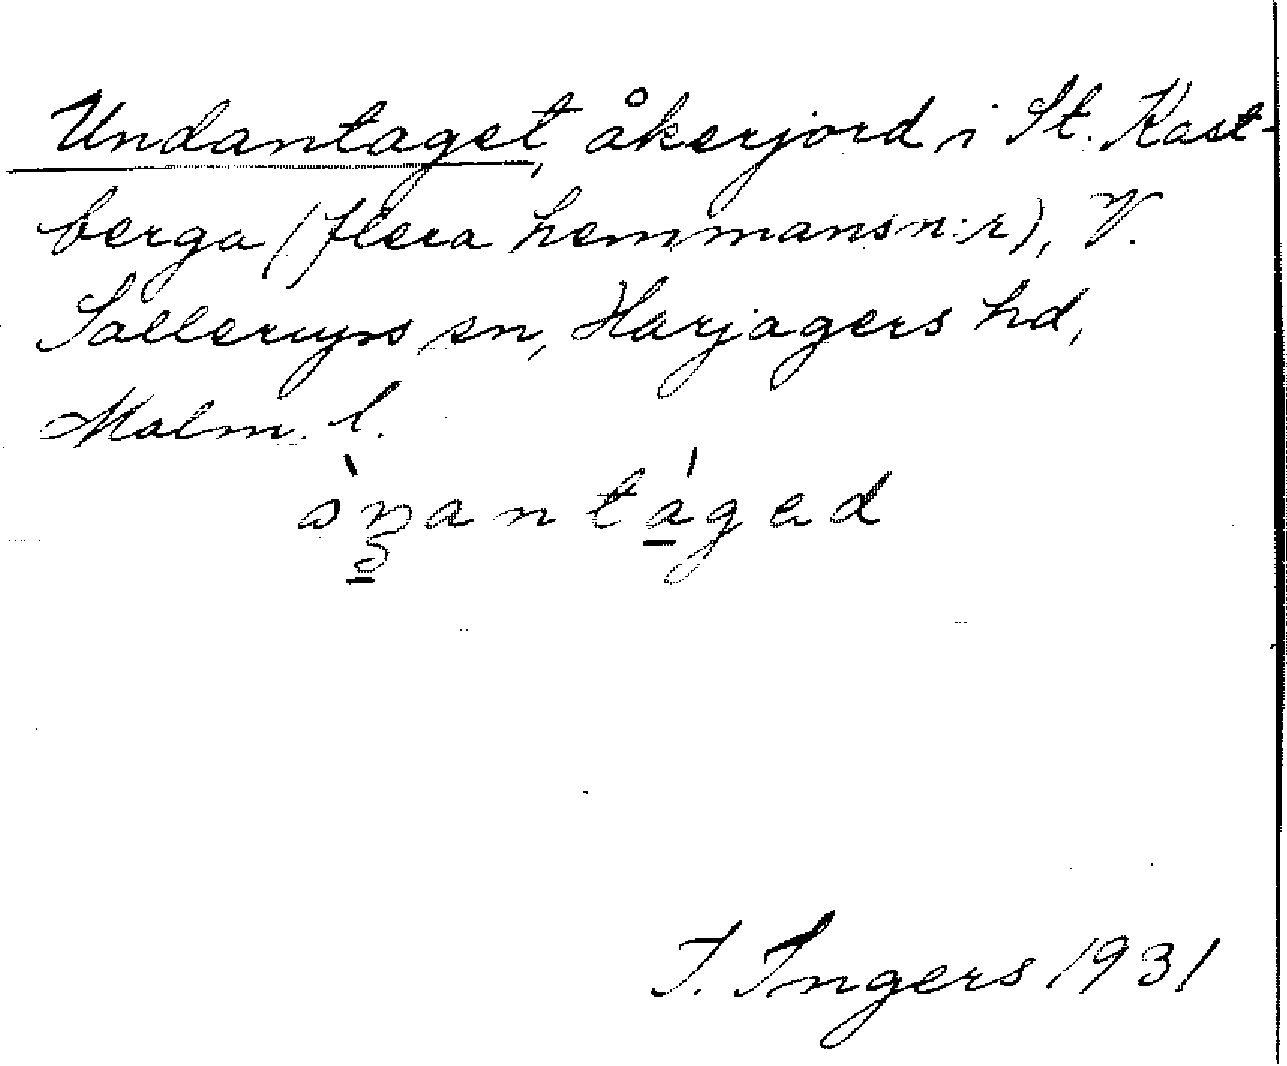 Undantaget, åkerjord i St. Kast-
berga (flera hemmansn:r), V.
Sallerups sn, Harjagers hd,
Malm. l.
I. Ingers 1931